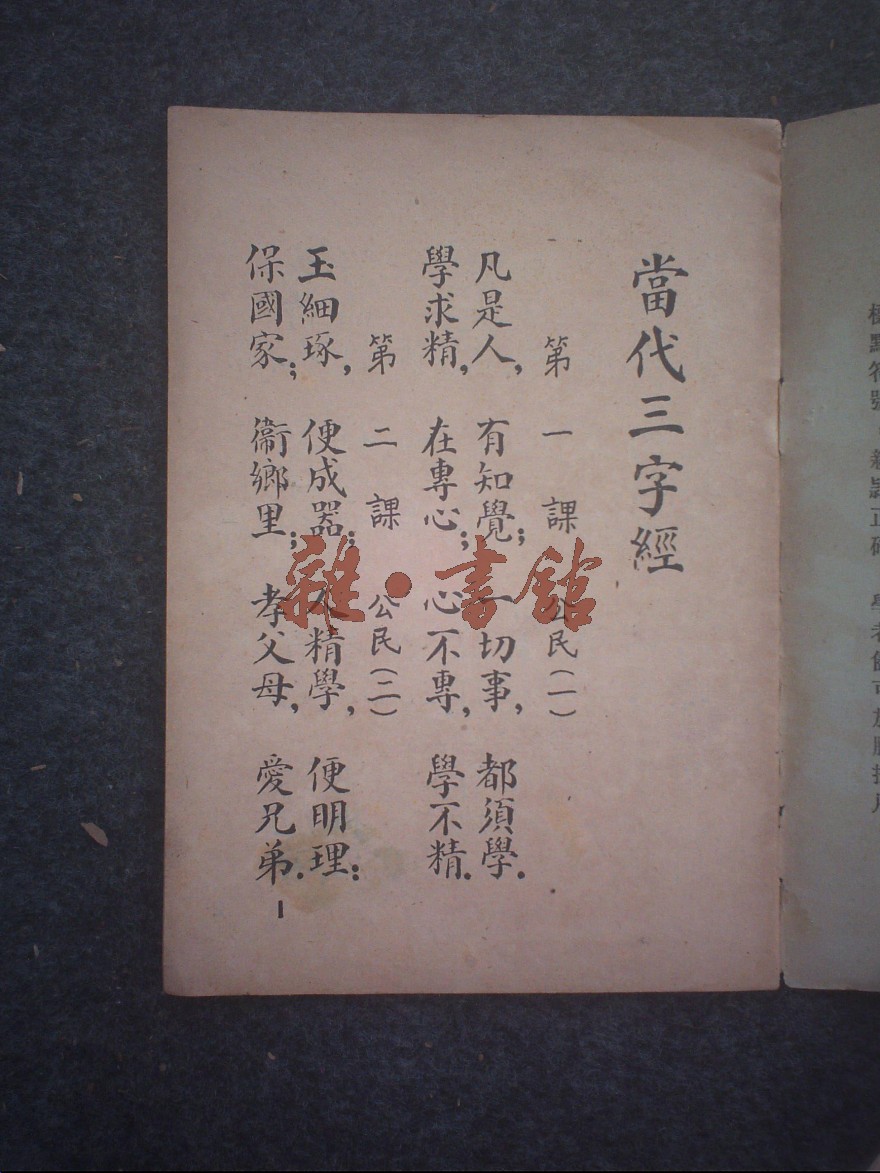 當代三字經
第一課 公民(一)
凡是人, 有知覺; 一切事, 都須學.
學求精, 在專心; 心不專, 學不精.
第二課 公民(二)
玉細琢, 便成器; 人精學, 便明理:
保國家; 衞鄉里; 孝父母, 愛兄弟.
1
雜·書館